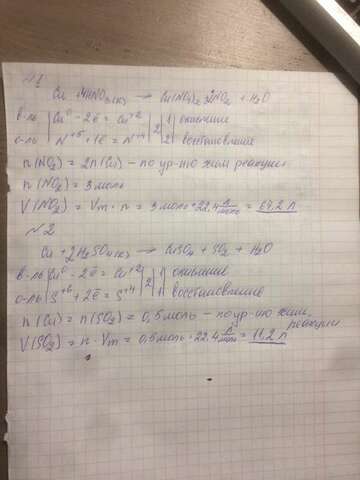 №1
Cu + 4HNO₃(к) → Cu(NO₃)₂ + 2NO₂ + H₂O
в-ль | Cu⁰ - 2ē = Cu⁺² | 2 | 1 | окисление
о-ль | N⁺⁵ + 1ē = N⁺⁴ | 2 | восстановление
n(NO₂) = 2n(Cu) - по ур-ню хим реакции
n(NO₂) = 3 моль
V(NO₂) = Vm · n = 3 моль · 22.4 л/моль = 67,2 л
№2
Cu + 2H₂SO₄(к) → CuSO₄ + SO₂ + H₂O
в-ль | Cu⁰ - 2ē = Cu⁺² | 2 | 1 | окисление
о-ль | S⁺⁶ + 2ē = S⁺⁴ | 1 | восстановление
n(Cu) = n(SO₂) = 0,5 моль - по ур-ню хим. реакции
V(SO₂) = n · Vm = 0,5 моль · 22.4 л/моль = 11,2 л